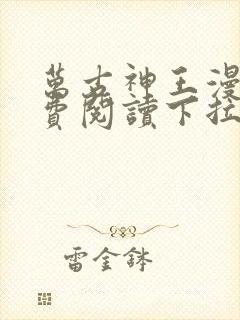 萬古神王漫
費閱讀下拉
雷金鉢